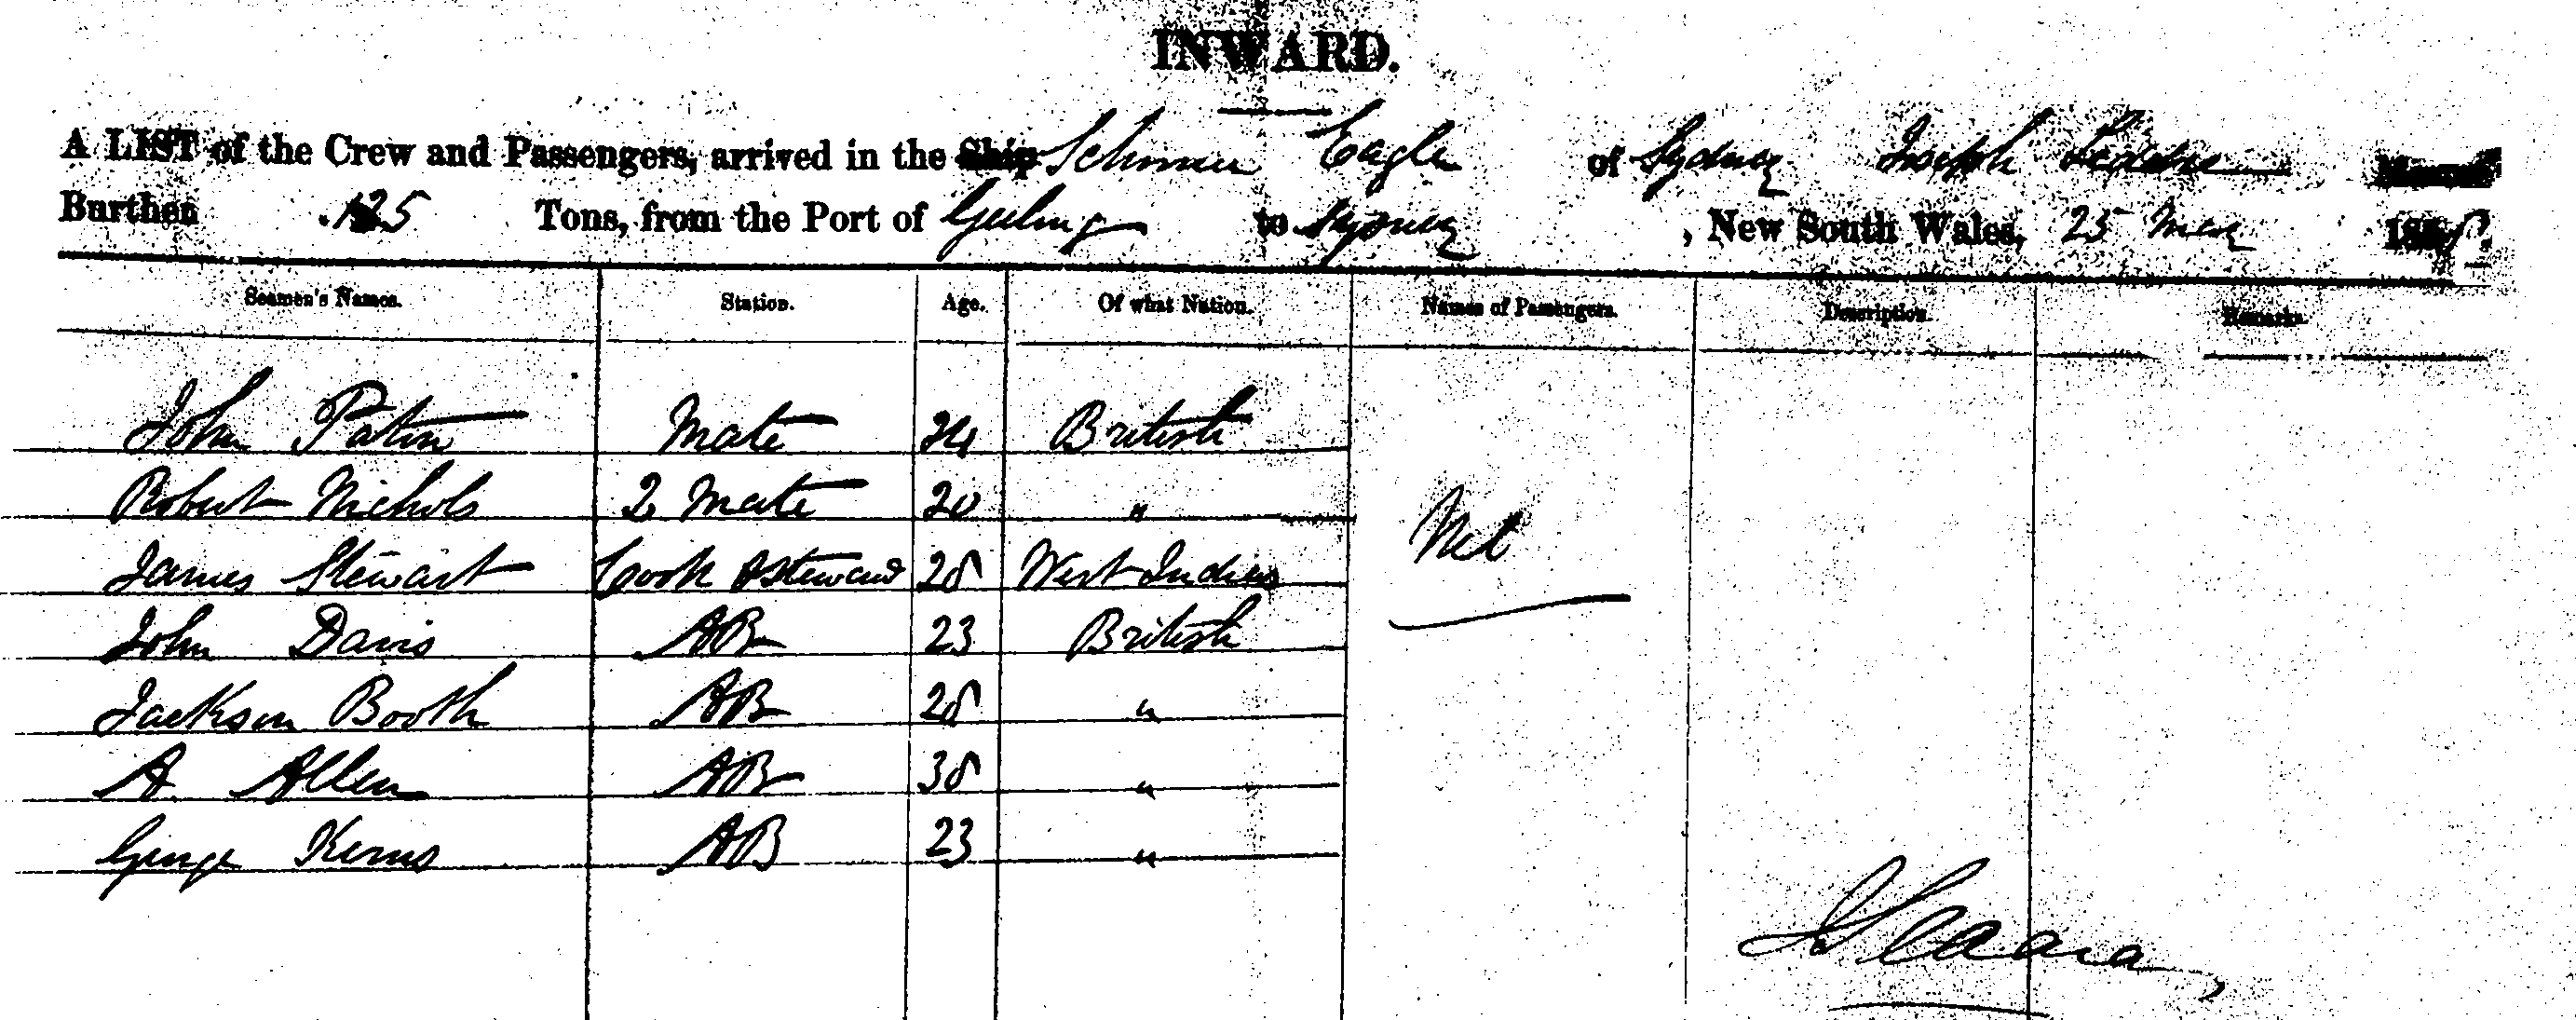 INWARD.
A LIST of the Crew and Passengers, arrived in the Ship Schooner Eagle of Sydney Joseph
Burthen 125 Tons, from the Port of Geelong to Sydney, New South Wales, 25 May
Seamen's Names. Station. Age. Of what Nation. Names of Passengers. Description. Remarks.
John Paton Mate 24 British
Robert Nichols 2 Mate 20 "
Nil
James Stewart Cook & Steward 28 West Indies
John Davis AB 23 British
Jackson Booth AB 28 "
A. Allen AB 38 "
George Kerns AB 23 "